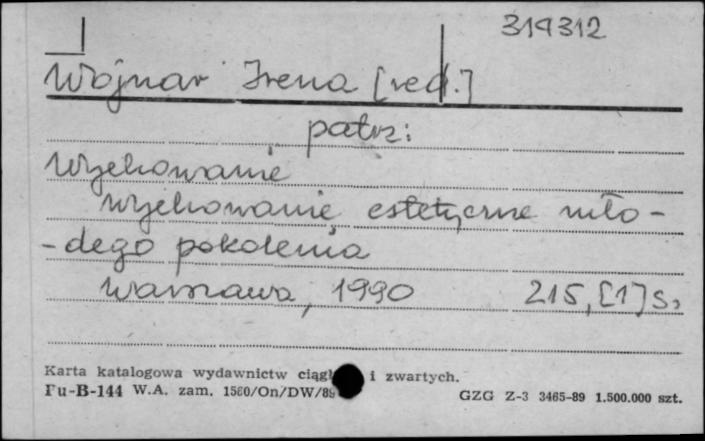 319312
Wojnar Irena [red.]
patrz:
Wychowanie
wychowanie estetyczne mło-
-dego pokolenia
Warszawa, 1990 215, [1] s.
Karta katalogowa wydawnictw i zwartych.
Pu-B-144 W.A. zam. 1560/On/DW/89 GZG Z-3 3465-89 1.500.000 szt.